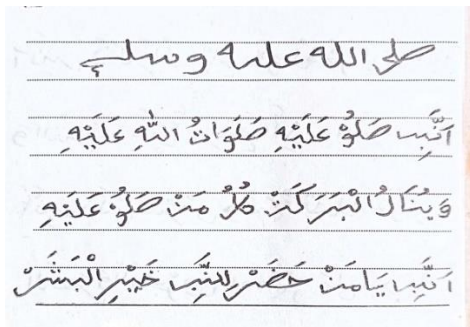 صلى الله عليه وسلم
اَنَّبِى صَلُوْ عَلَيْهِ صَلَوَاتُ اللّٰهِ عَلَيْهِ
وَيَنَالُ الْبَرَكَتْ كُلُّ مَنْ صَلُوْ عَلَيْهِ
اَنَّبِى يَامَنْ حَضَرْ لِنَّبِى خَيْرِ الْبَشَرْ